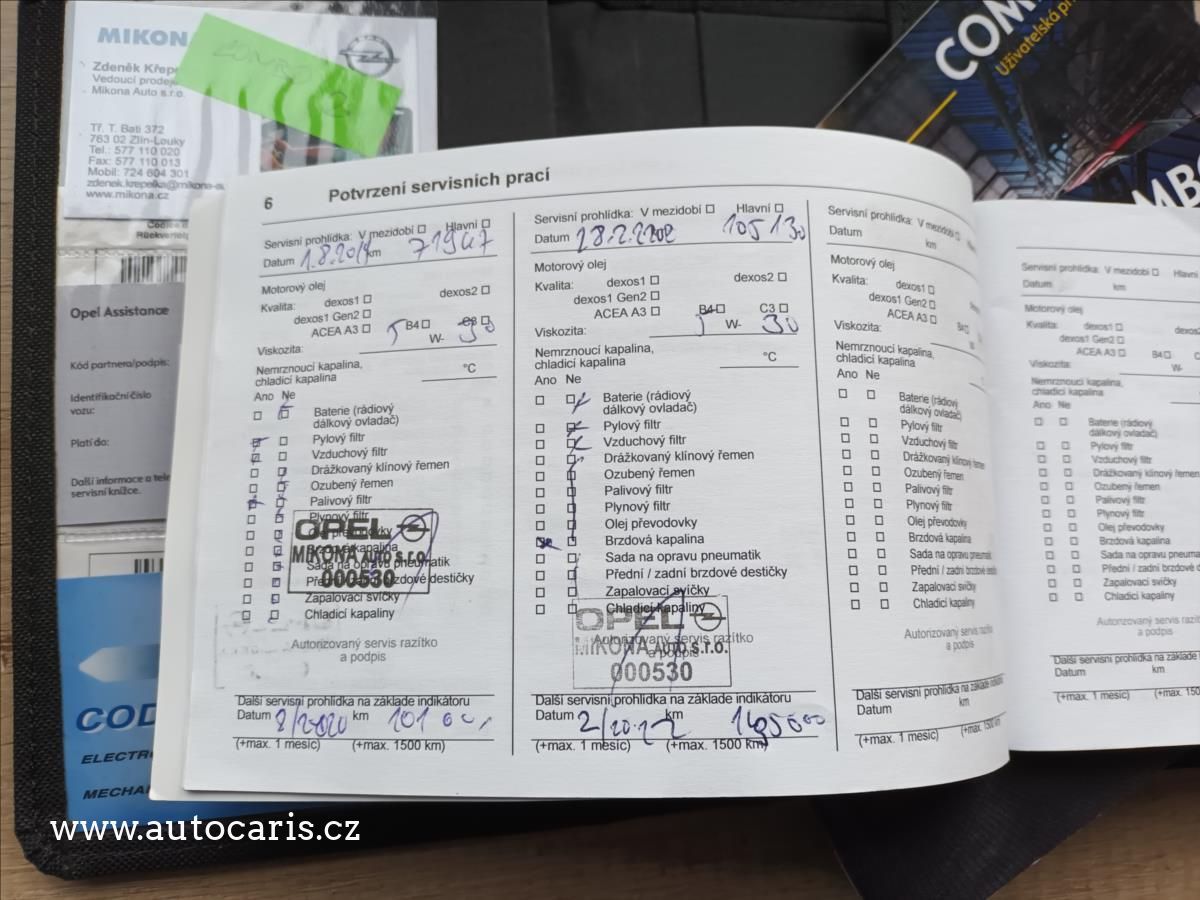 MIKONA
COMBO
Zdeněk Křep
Vedoucí prodej
Mikona Auto s.r.o.
Tř. T. Bati 372
763 02 Zlín-Louky
Tel.: 577 110 020
Fax: 577 110 013
Mobil: 724 604 301
zdenek.krepelka@mikona-a
www.mikona.cz
COM
Uživatelská př
MBO
Opel Assistance
Kód partnera/podpis:
Identifikační číslo
vozu:
Platí do:
Další informace a tele
servisní knížce.
COD
ELECTRO
MECHA
6 Potvrzení servisních prací
Servisní prohlídka: V mezidobí Hlavní
Datum 1.8.2019 km 71947
Motorový olej
Kvalita: dexos1 dexos2
dexos1 Gen2
ACEA A3 B4 C3
Viskozita: 5 W- 30
Nemrznoucí kapalina,
chladicí kapalina °C
Ano Ne
Baterie (rádiový
dálkový ovladač)
Pylový filtr
Vzduchový filtr
Drážkovaný klínový řemen
Ozubený řemen
Palivový filtr
Plynový filtr
Olej převodovky
Brzdová kapalina
Sada na opravu pneumatik
Přední / zadní brzdové destičky
Zapalovací svíčky
Chladicí kapaliny
OPEL
MIKONA Auto s.r.o.
000530
Autorizovaný servis razítko
a podpis
Další servisní prohlídka na základe indikátoru
Datum 2/2020 km 101 000
(+max. 1 mesíc) (+max. 1500 km)
Servisní prohlídka: V mezidobí Hlavní
Datum 28.2.2202 105130
Motorový olej
Kvalita: dexos1 dexos2
dexos1 Gen2
ACEA A3 B4 C3
Viskozita: 5 W- 30
Nemrznoucí kapalina,
chladicí kapalina °C
Ano Ne
Baterie (rádiový
dálkový ovladač)
Pylový filtr
Vzduchový filtr
Drážkovaný klínový řemen
Ozubený řemen
Palivový filtr
Plynový filtr
Olej převodovky
Brzdová kapalina
Sada na opravu pneumatik
Přední / zadní brzdové destičky
Zapalovací svíčky
Chladicí kapaliny
OPEL
Autorizovaný servis razítko
a podpis
MIKONA Auto s.r.o.
000530
Další servisní prohlídka na základe indikátoru
Datum 2/20 km
(+max. 1 mesíc) (+max. 1500 km)
Servisní prohlídka: V mezidobí
Datum km
Motorový olej
Kvalita: dexos1
dexos1 Gen2
ACEA A3 B4
Viskozita: W
Nemrznoucí kapalina,
chladicí kapalina
Ano Ne
Baterie (rádiový
dálkový ovladač)
Pylový filtr
Vzduchový filtr
Drážkovaný klínový řemen
Ozubený řemen
Palivový filtr
Plynový filtr
Olej převodovky
Brzdová kapalina
Sada na opravu pneumatik
Přední / zadní brzdové destič
Zapalovací svíčky
Chladicí kapaliny
Autorizovaný servis razít
a podpis
Další servisní prohlídka na základe indikáto
Datum km
(+max. 1 mesíc) (+max. 1500 km)
Servisní prohlídka: V mezidobí Hlavní
Datum km
Motorový olej
Kvalita: dexos1 dexos2
dexos1 Gen2
ACEA A3 B4 C
Viskozita: W-
Nemrznoucí kapalina,
chladicí kapalina
Ano Ne
Baterie (rádiový
dálkový ovladač)
Pylový filtr
Vzduchový filtr
Drážkovaný klínový řemen
Ozubený řemen
Palivový filtr
Plynový filtr
Olej převodovky
Brzdová kapalina
Sada na opravu pneumatik
Přední / zadní brzdové
Zapalovací svíčky
Chladicí kapaliny
Autorizovaný servis
a podpis
Další servisní prohlídka na základe
Datum km
(+max. 1 mesíc) (+max. 150
www.autocaris.cz